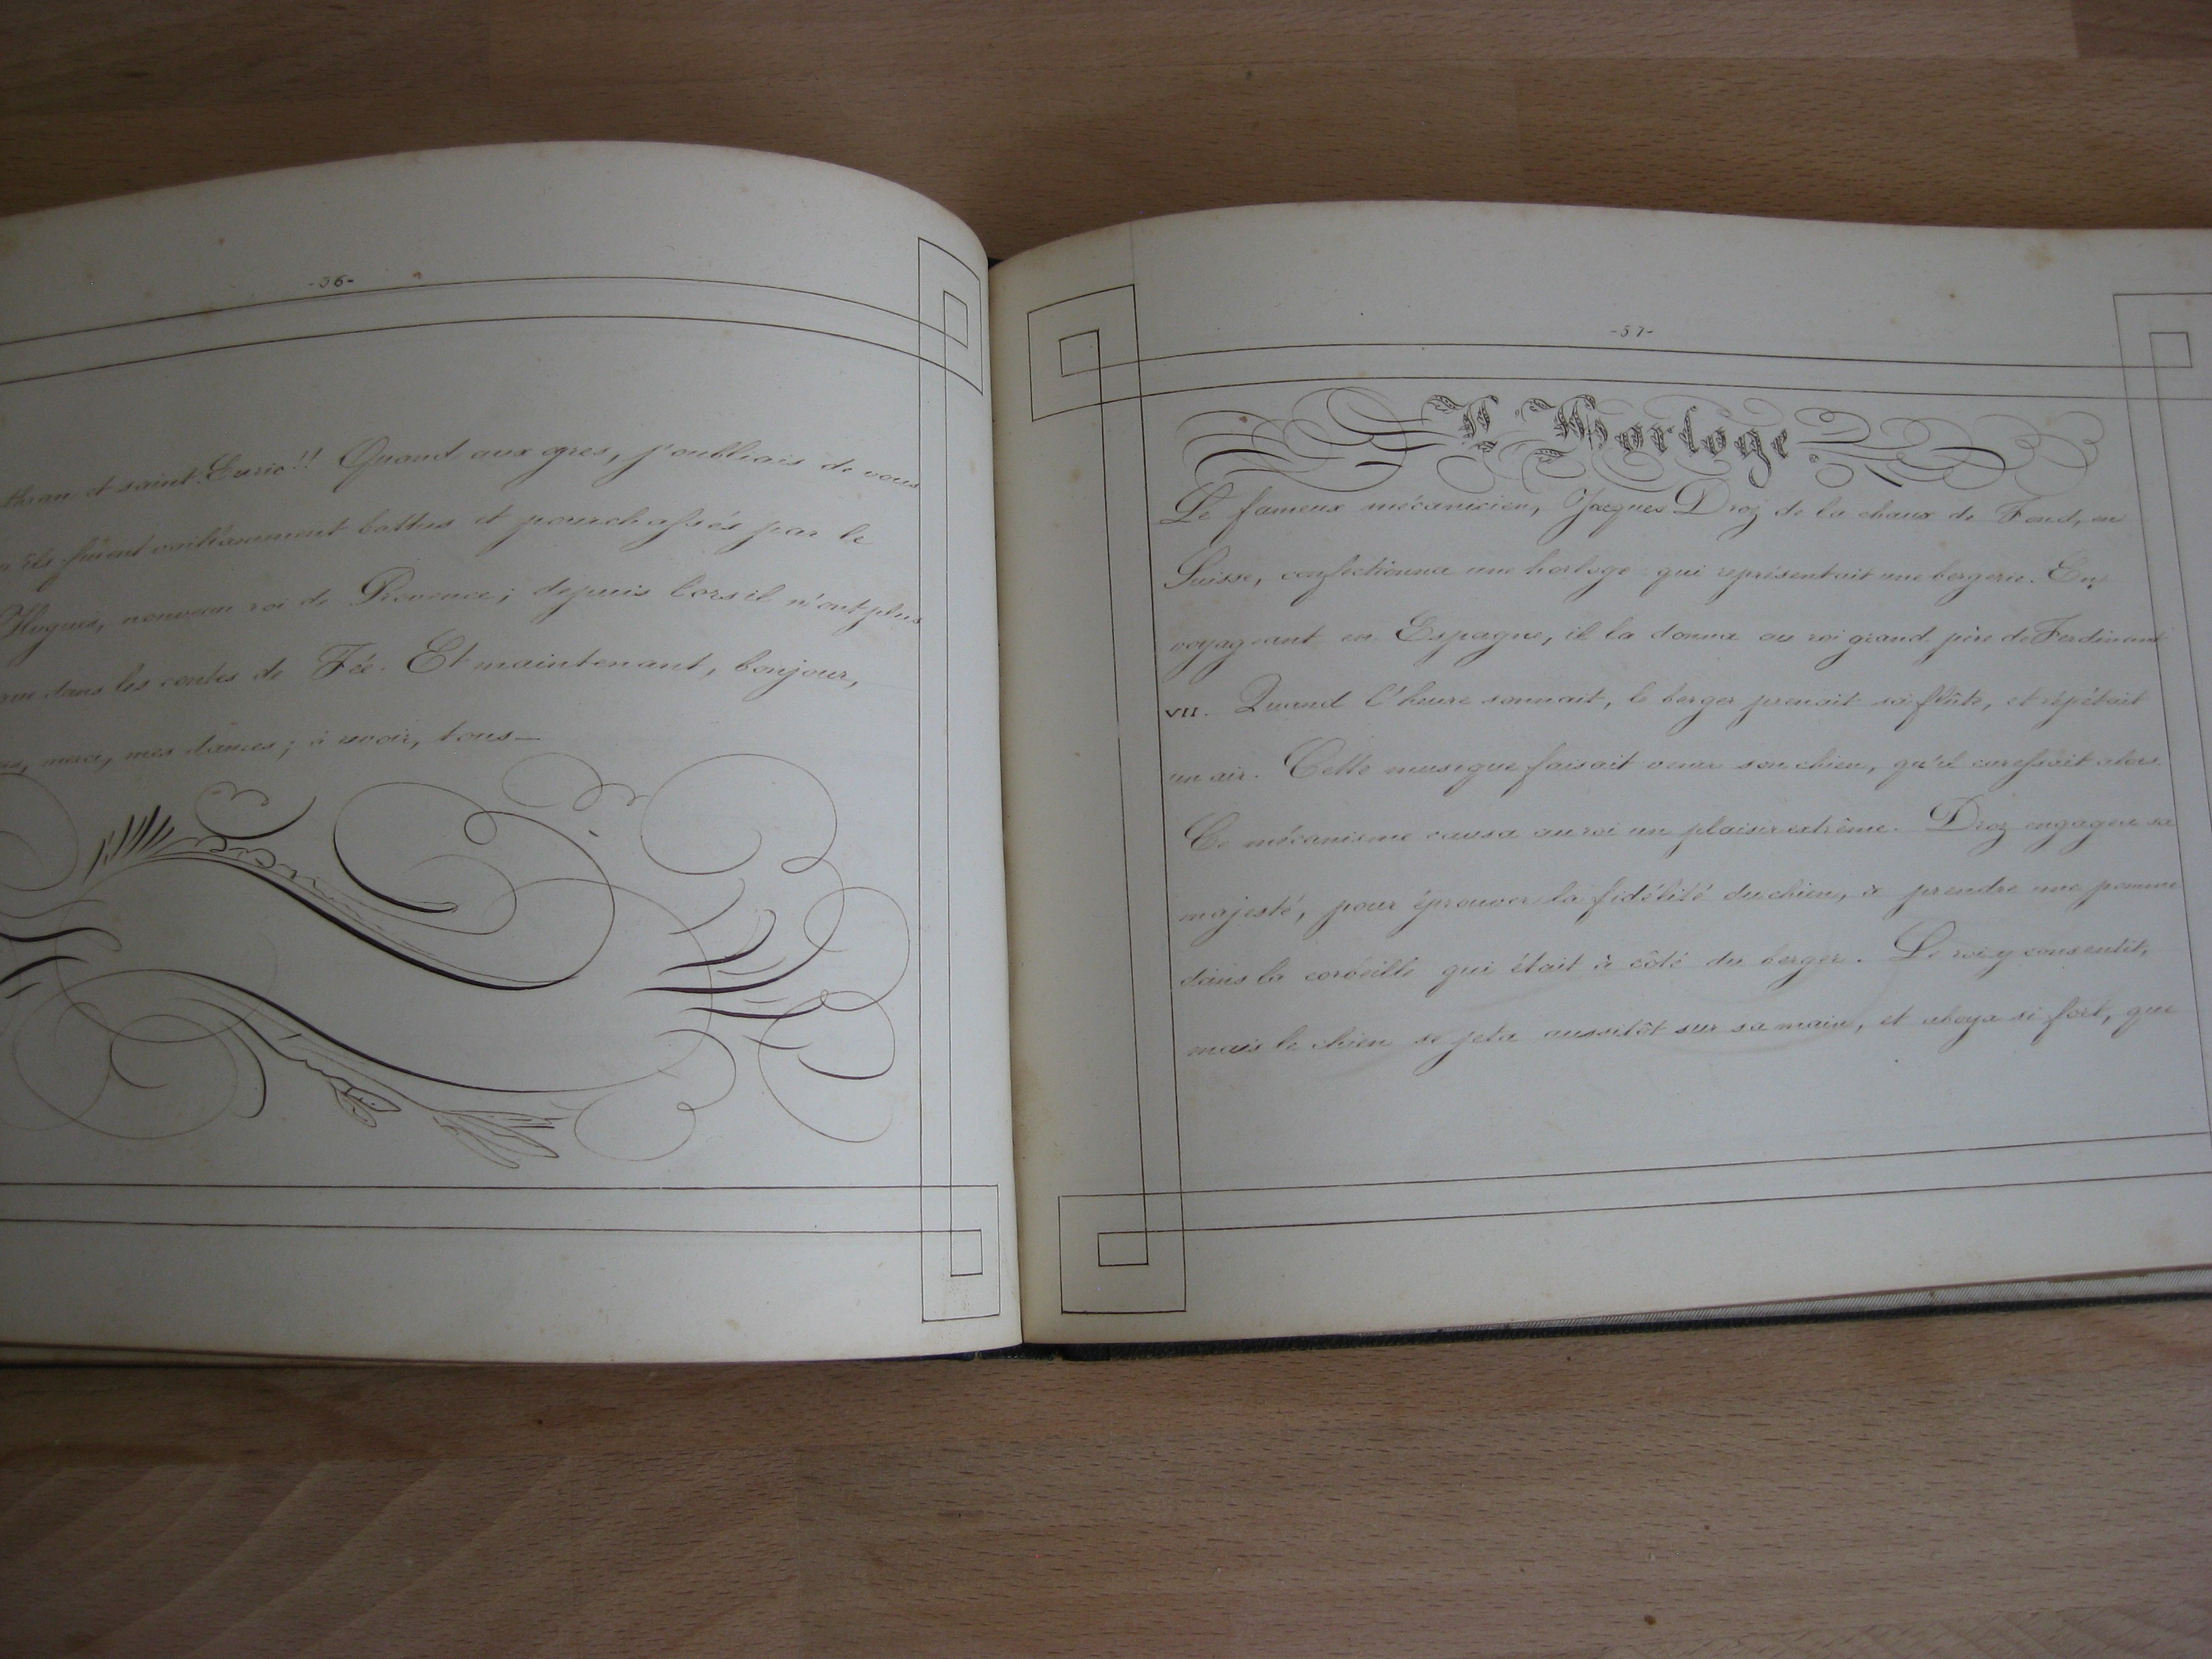 -56-
et saint Eurio!! Quand aux ogres, j'oubliais de vous
ils furent vaillamment battus et pourchassés par le
Hugues, nouveau roi de Provence; depuis lors il n'ont plus
que dans les contes de Fée. Et maintenant, bonjour,
merci, mes dames; à revoir, tous—
-57-
L'Horloge.
Le fameux mécanicien, Jacques Droz de la chaux de Fond, en
Suisse, confectionna une horloge qui représentait une bergerie. En
voyageant en Espagne, il la donna au roi grand père de Ferdinand
VII. Quand l'heure sonnait, le berger prenait sa flûte, et répétait
un air. Cette musique faisait venir son chien, qu'il caressait alors.
Ce mécanisme causa au roi un plaisir extrême. Droz engagea sa
majesté, pour éprouver la fidélité du chien, à prendre une pomme
dans la corbeille qui était à côté du berger. Le roi y consentit,
mais le chien se jeta aussitôt sur sa main, et aboya si fort, que